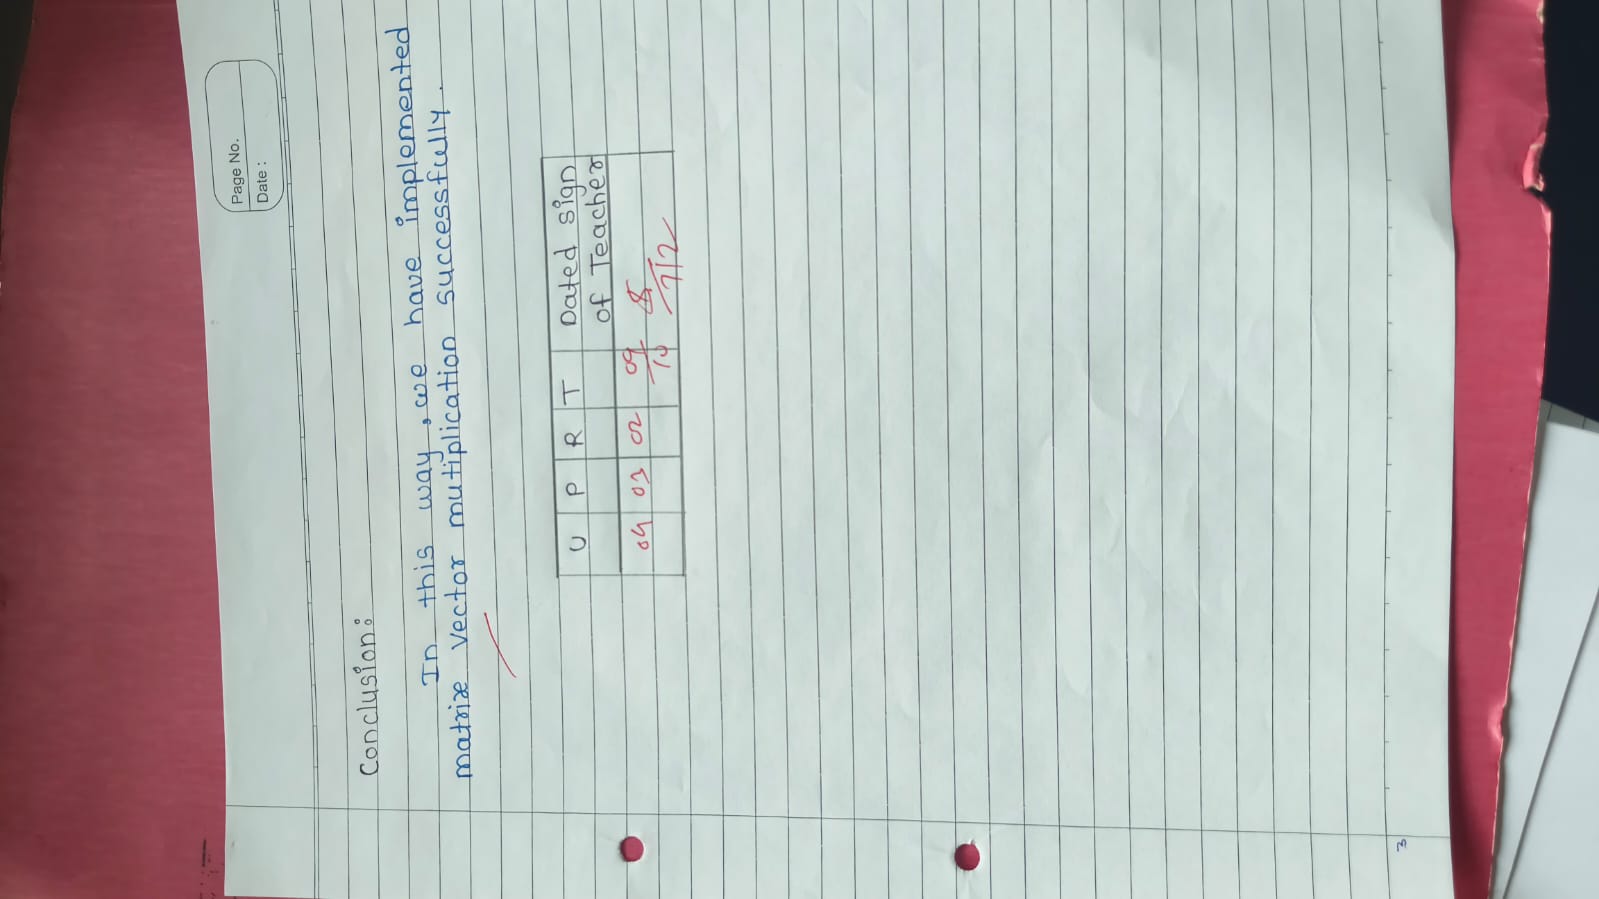 Page No.
Date :
Conclusion:
In this way, we have implemented
matrix vector mutiplication successfully.
U P R T Dated sign
of Teacher
04 03 02 09/10
7/2
3